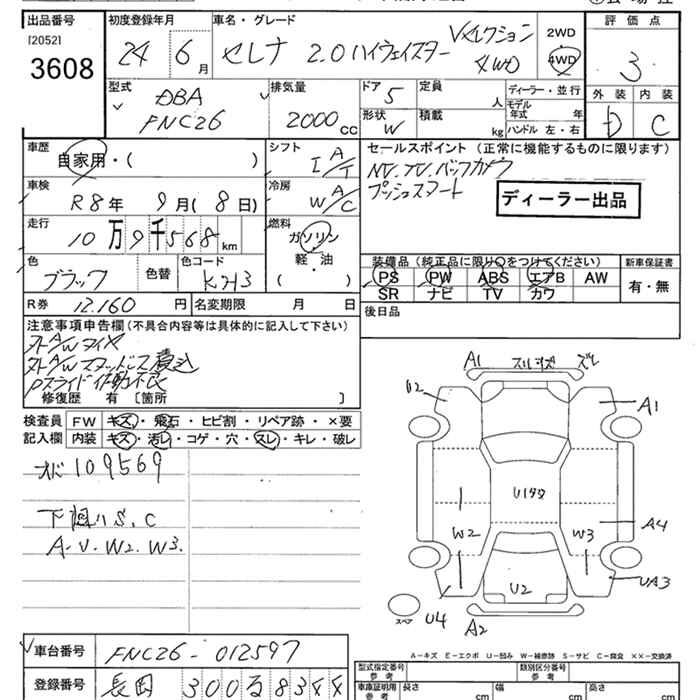 出品番号
[2052]
3608
初度登録年月
24 6月
車名・グレード
セレナ 2.0 ハイウェイスター
Vセレクション
4WD
2WD
4WD
評価点
3
外装 内装
D C
型式
DBA
FNC26
排気量
2000cc
ドア 5
形状 W
定員 人
積載 kg
ディーラー・並行
モデル年式 年
ハンドル 左・右
車歴
自家用・( )
シフト
I A/T
セールスポイント (正常に機能するものに限ります)
NV.TV.バックカメラ
プッシュスタート
ディーラー出品
車検
R8年 9月(8日)
冷房
W A/C
走行
10万9千568km
燃料
ガソリン
軽・油
( )
色
ブラック
色替
色コード
KH3
装備品(純正品に限り○をつけてください)
PS PW ABS エアB AW
SR ナビ TV カワ
新車保証書
有・無
R券 12.160円
名変期限 月 日
後日品
注意事項申告欄(不具合内容等は具体的に記入して下さい)
外AWタイヤ
外AWスタッドレス積込
Pスライド作動不良
修復歴 有 [箇所 ]
検査員記入欄
FW キズ・飛石・ヒビ割・リペア跡・×要
内装 キズ・汚レ・コゲ・穴・スレ・キレ・破レ
メーター 109569
下回りS.C
A.U.W2.W3.
A1 スリキズ ズレ
U2
A1
U1タタ
W2
W3
A4
U2
UA3
U4
A2
スペア
A－キズ E－エクボ U－凹み W－補修跡 S－サビ C－腐食 ××－交換済
車台番号
FNC26-012597
登録番号
長岡 300 る 8344
型式指定番号 参考
類別区分番号 参考
車庫証明用 参考
長さ cm
幅 cm
高さ cm